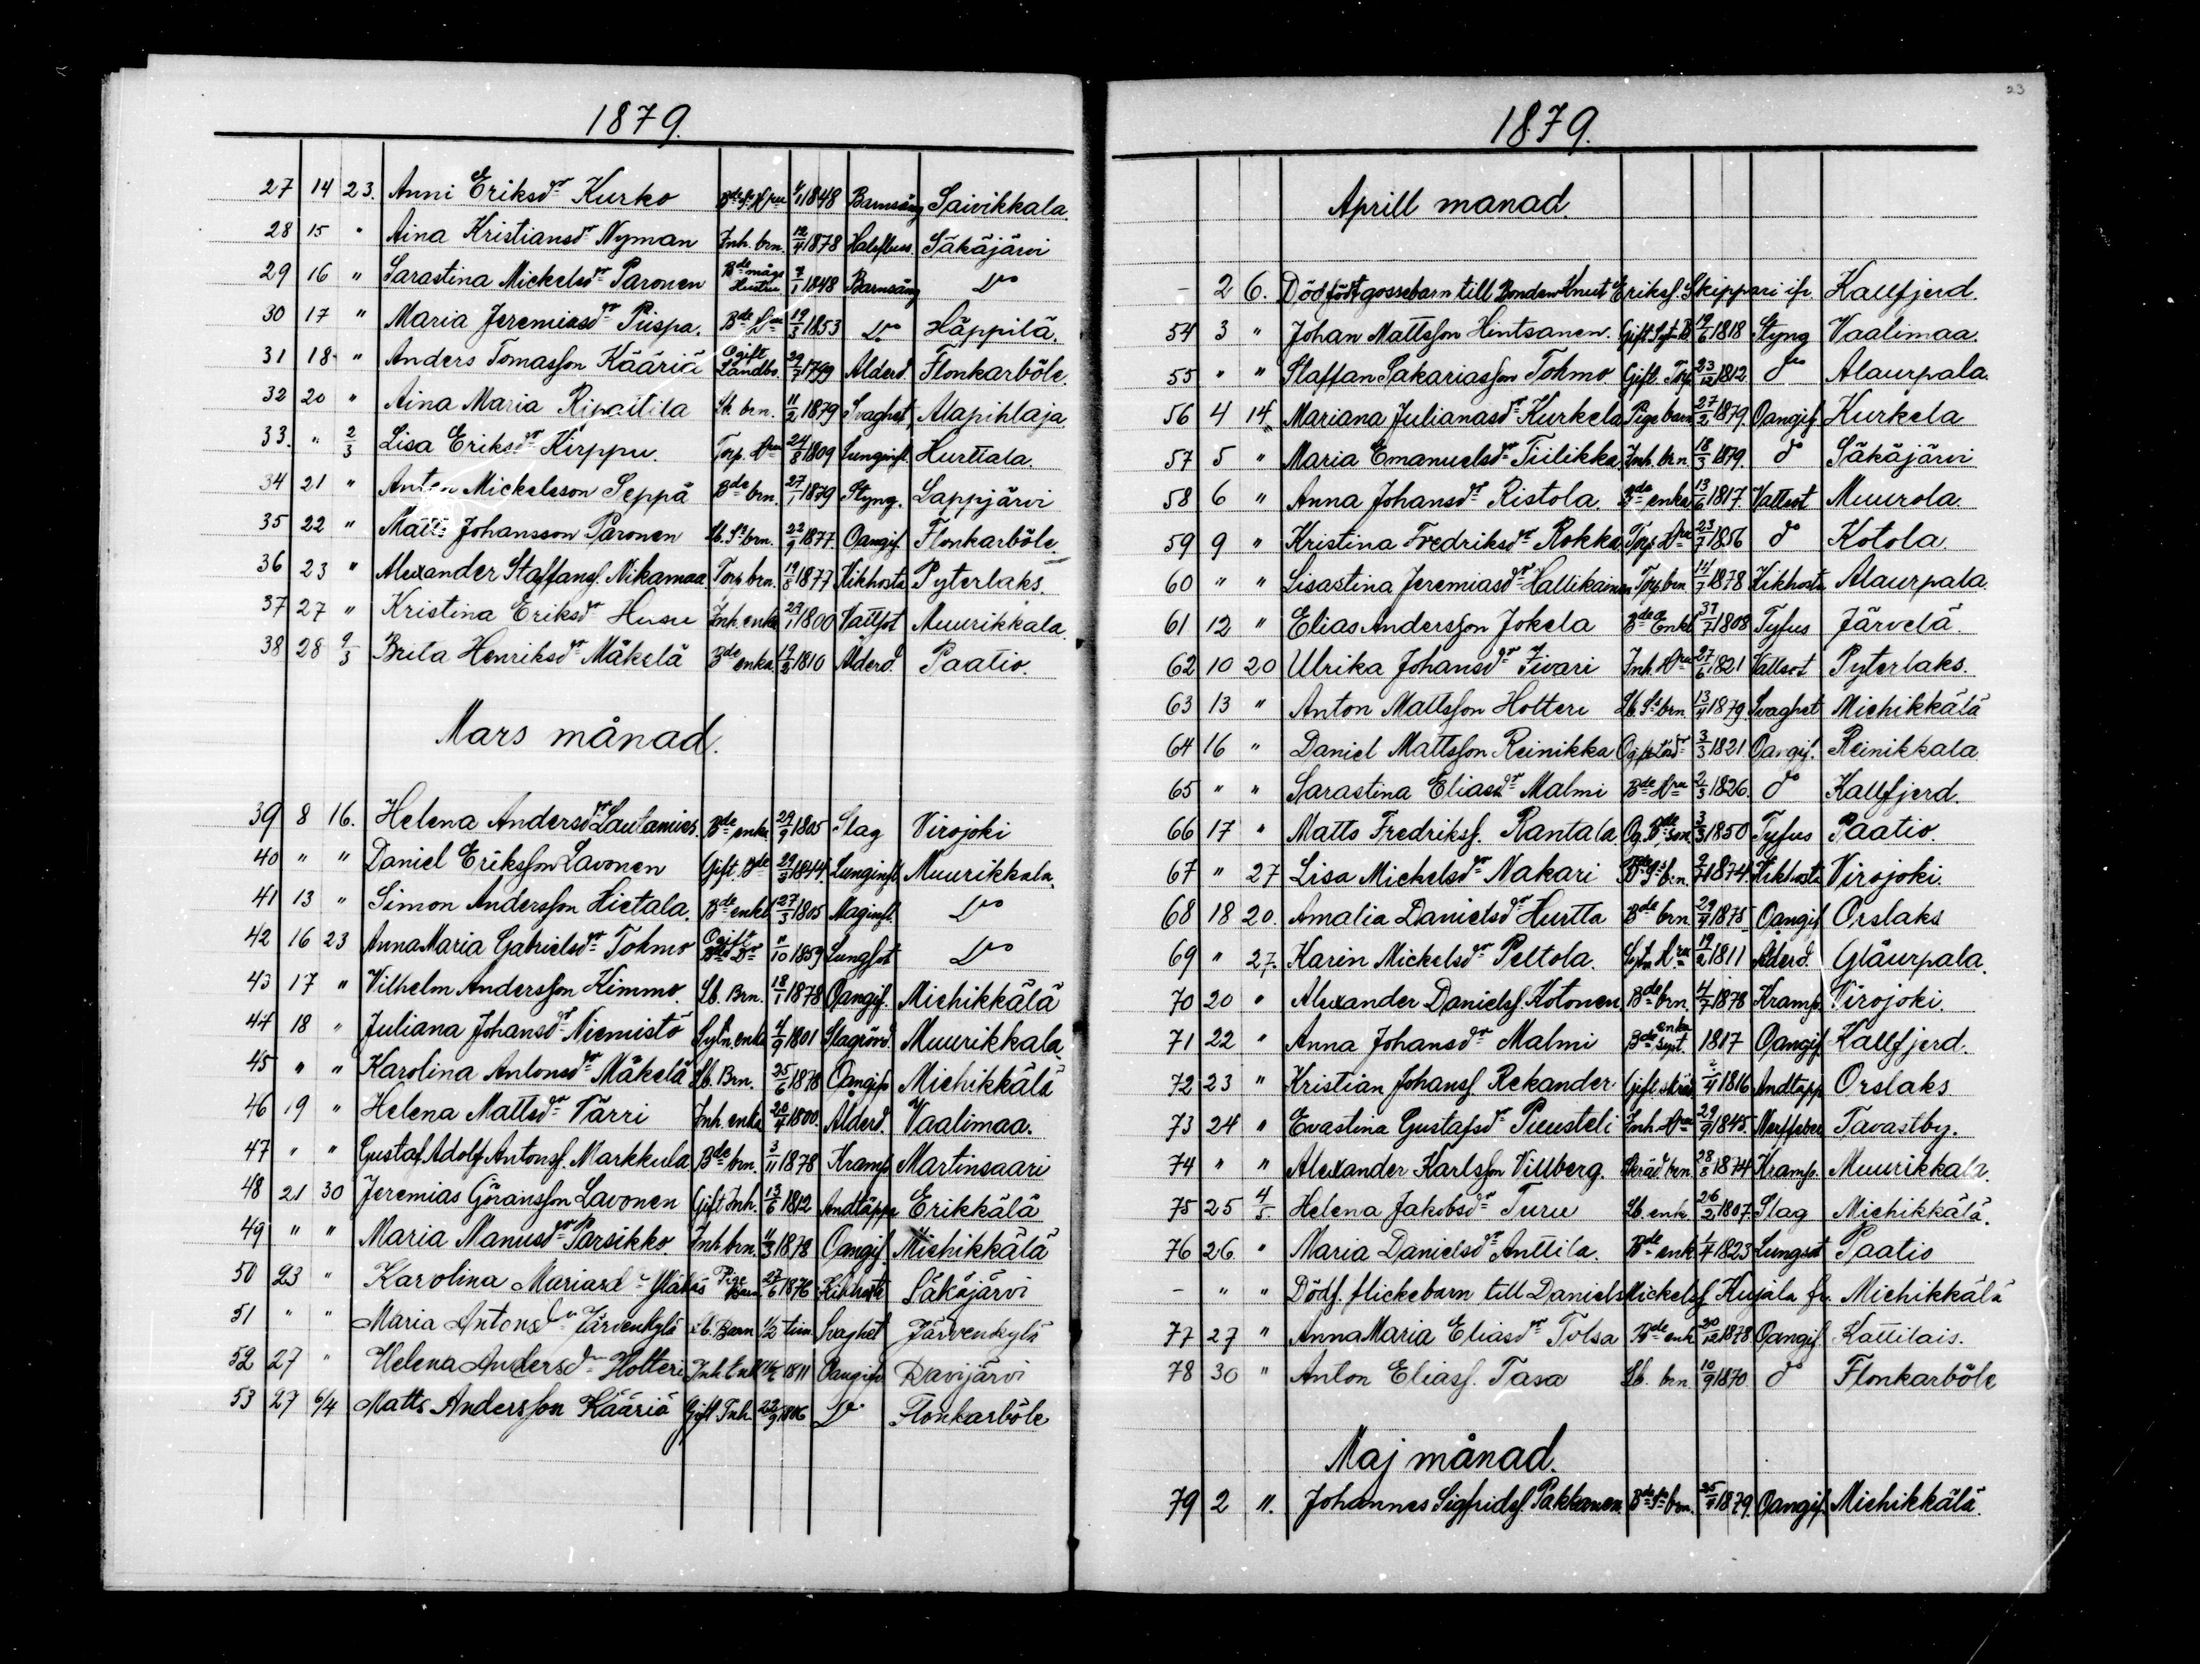 1879.
27 14 23. Anni Eriksdr Kurko Bde Ss Hru 1/1 1848 Barnsäng Saivikkala
28 15 " Aina Kristiansdr Nyman Inh. brn. 12/4 1878 Halsfluss. Säkäjärvi
29 16 " Sarastina Mickelsdr Paronen Bde mågs Hustru 7/1 1848 Barnsäng Do
30 17 " Maria Jeremiasdr Piispa. Bde Dr 19/3 1853 Do Häppilä.
31 18 " Anders Tomasson Kääriä Ogift Landbo. 29/7 1799 Ålderd. Flonkarböle.
32 20 " Aina Maria Ripaitila Lb. brn. 11/2 1879 Svaghet Alapihlaja
33. " 2/3 Lisa Eriksdr Kirppu. Torp. Hru 24/8 1809 Lunginfl. Hurttala.
34 21 " Anton Mickelsson Seppä Bde brn. 27/1 1879 Styng. Lappjärvi
35 22 " Matts Johansson Paronen Lb. Ss brn. 22/9 1877. Oangif. Flonkarböle.
36 23 " Alexander Staffansf. Nikamaa Torp brn. 19/8 1877 Kikhosta Pyterlaks.
37 27 " Kristina Eriksdr Husu Inh. enka 29/1 1800 Vattsot Muurikkala
38 28 9/3 Brita Henriksdr Mäkelä Bde enka. 19/3 1810 Ålderd. Paatio.
Mars månad.
39 8 16. Helena Andersdr Lautamies. Bde enka 29/9 1805 Slag Virojoki
40 " " Daniel Eriksson Lavonen Gift Bde 29/3 1844. Lunginfl. Muurikkala.
41 13 " Simon Andersson Hietala. Bde enkl 27/3 1805 Maginfl. Do
42 16 23 Anna Maria Gabrielsdr Tohmo Ogift Bde Dr 11/10 1859 Lungsot Do
43 17 " Vilhelm Andersson Kimmo. Lb. Brn. 18/1 1878 Oangif. Michikkälä
44 18 " Juliana Johansdr Niemistö Sytn. enka 4/9 1801 Slagrörd. Muurikkala.
45 " " Karolina Antonsdr Mäkelä Lb. Brn. 25/6 1878 Oangif Michikkälä
46 19 " Helena Mattsdr Tärri Inh. enka 20/4 1800. Ålderd. Vaalimaa.
47 " " Gustaf Adolf Antonsf. Markkula Bde brn. 3/11 1878 Kramp Martinsaari
48 21 30 Jeremias Göransson Lavonen Gift Inh. 13/6 1812 Andtäppa Erikkälä
49 " " Maria Manusdr Parsikko Inh brn. 4/3 1878 Oangif. Michikkälä
50 23 " Karolina Pige Barn 27/6 1876 Kikhosta Säkäjärvi
51 " " Maria Antonsdr Järvenkylä Lb. Barn 1/2 tim. Svaghet Järvenkylä
52 27 " Helena Andersdr Hotteri Inh Enk 1811 Oangif Davijärvi
53 27 6/4 Matts Andersson Kääriä Gift Inh. 22/9 1806 Do Flonkarböle
23
1879.
Aprill manad.
- 2 6. Dödfödt gossebarn till Bonden Knut Eriksf. Skippari ifr Kallfjerd.
54 3 " Johan Mattsson Hintsanen. Gift Syt B 19/6 1818 Styng Vaalimaa.
55 " " Staffan Sakariasson Tohmo Gift Torp 23/12 1812 do Alaurpala.
56 4 14 Mariana Julianasdr Kurkela Pige barn 27/2 1879. Oangif. Kurkela
57 5 " Maria Emanuelsdr Tiilikka Inh. brn. 18/3 1879. do Säkäjärvi
58 6 " Anna Johansdr Ristola. Bde enka 13/6 1817. Vattsot Muurola.
59 9 " Kristina Fredriksdr Rokka Torp Hru 23/7 1856 do Kotola.
60 " " Lisastina Jeremiasdr Hallikainen Torp brn 14/7 1878 Kikhosta Alaurpala.
61 12 " Elias Andersson Jokela Bde Enkl 31/7 1808 Tyfus Järvelä.
62 10 20 Ulrika Johansdr Iivari Inh. Hru 27/6 1821 Vattsot Pyterlaks.
63 13 " Anton Mattsson Hotteri Lb. Ss brn. 13/4 1879 Svaghet Michikkälä
64 16 " Daniel Mattsson Reinikka 3/3 1821 Oangif. Reinikkala
65 " " Sarastina Eliasdr Malmi Bde Hru 2/3 1826. do Kallfjerd.
66 17 " Matts Fredriksf. Rantala Og. Bde son 3/3 1850 Tyfus Paatio.
67 " 27 Lisa Michelsdr Nakari Bde Ss b.n. 9/7 1874. Kikhosta Virojoki.
68 18 20. Amalia Danielsdr Hurtta Bde brn. 29/4 1875 Oangif Orslaks
69 " 27. Karin Mickelsdr Peltola. Sytn. Hru 19/2 1811 Ålderd. Gläurpala.
70 20 " Alexander Danielsf. Kotonen Bde brn. 4/7 1878 Kramp. Virojoki.
71 22 " Anna Johansdr Malmi Bde enka sytn. 1817 Oangif Kallfjerd.
72 23 " Kristian Johansf. Rekander Gift skräd. 2/4 1816 Andtäpp Orslaks
73 24 " Evastina Gustafsdr Puusteli Inh. Hru 29/9 1845. Nerffeber Tavastby.
74 " " Alexander Karlsson Villberg. Skräd. brn 28/8 1874 Kramp. Muurikkala.
75 25 4/5. Helena Jakobsdr Turu Lb. enk. 26/2 1807. Slag Michikkälä.
76 26 " Maria Danielsdr Anttila. Bde enk 1/4 1823 Lungsot Paatio
- " " Dödf. flickebarn till Daniels Mickelsf Kujala fr. Michikkälä
77 27 " Anna Maria Eliasdr Tolsa Bde enk 20/12 1878 Oangif. Kattilais.
78 30 " Anton Eliasf. Tasa Lb. brn. 10/9 1870 do Flonkarböle
Maj månad.
79 2 ". Johannes Sigfridsf. Pakkanen Bde Ss brn. 25/4 1879. Oangif. Michikkälä.